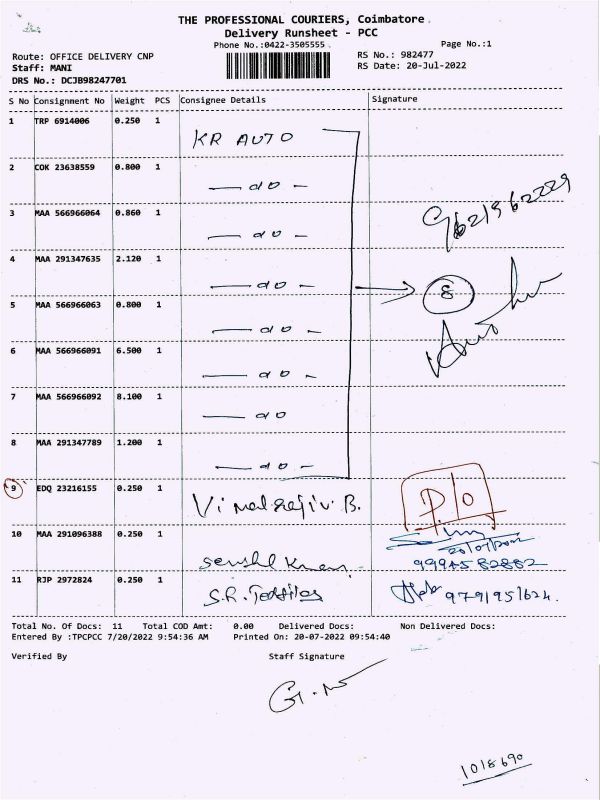 THE PROFESSIONAL COURIERS, Coimbatore.
Delivery Runsheet - PCC
Phone No.:0422-3505555
Page No.:1
Route: OFFICE DELIVERY CNP
RS No.: 982477
Staff: MANI
RS Date: 20-Jul-2022
DRS No.: DCJB98247701
S No Consignment No Weight PCS Consignee Details Signature
1 TRP 6914006 0.250 1 KR AUTO
2 COK 23638559 0.800 1 — do —
3 MAA 566966064 0.860 1 — do —
4 MAA 291347635 2.120 1 — do — 8
5 MAA 566966063 0.800 1 — do —
6 MAA 566966091 6.500 1 — do —
7 MAA 566966092 8.100 1 — do
8 MAA 291347789 1.200 1 — do —
9 EDQ 23216155 0.250 1 Vimalrajiv B. D/O
10 MAA 291096388 0.250 1 20/07/2022
11 RJP 2972824 0.250 1 S.R. 9791951624.
Total No. Of Docs: 11 Total COD Amt: 0.00 Delivered Docs: Non Delivered Docs:
Entered By :TPCPCC 7/20/2022 9:54:36 AM Printed On: 20-07-2022 09:54:40
Verified By Staff Signature
1018690